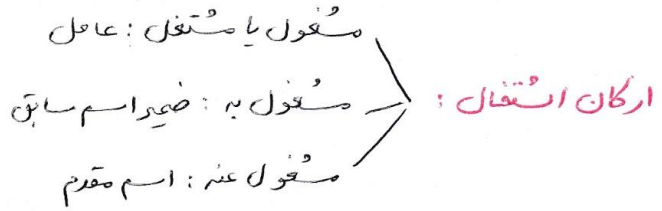 ارکان اشتغال :
مشغول یا مشتغل : عامل
مشغول به : ضمیر اسم سابق
مشغول عنه : اسم مقدم